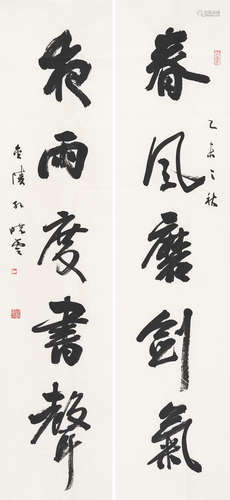 春風磨劍氣
乙未之秋
夜雨度書聲
金陵孔曉雲